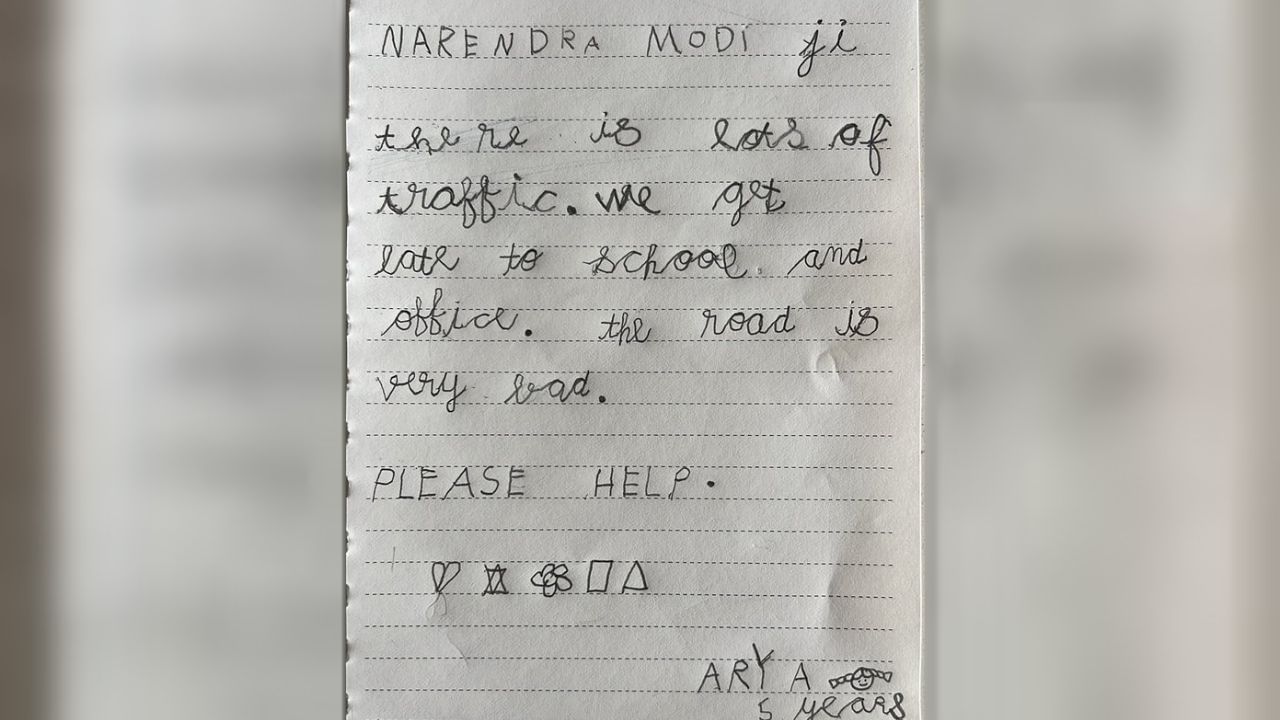 NARENDRA MODI ji
there is lots of
traffic. we get
late to school and
office. the road is
very bad.
PLEASE HELP.
ARYA
5 years